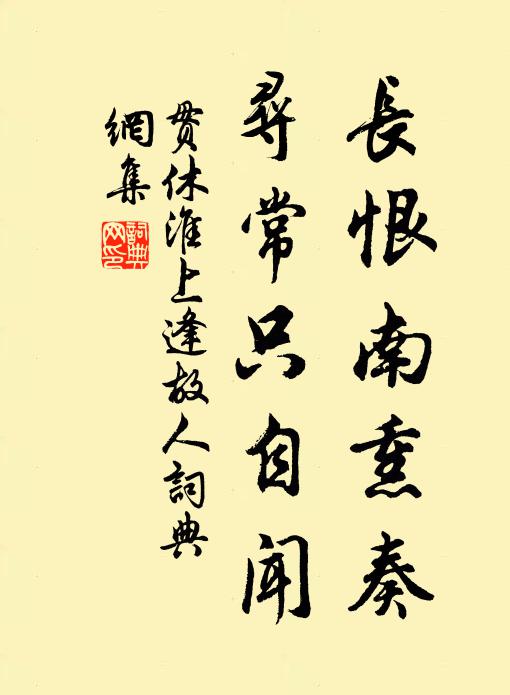 長恨南熏奏
尋常只自聞
贯休淮上逢故人詞典
網集
詞典
网印